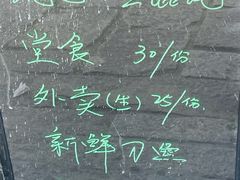 堂食 30/份
外卖(生) 25/份
新鲜刀鱼